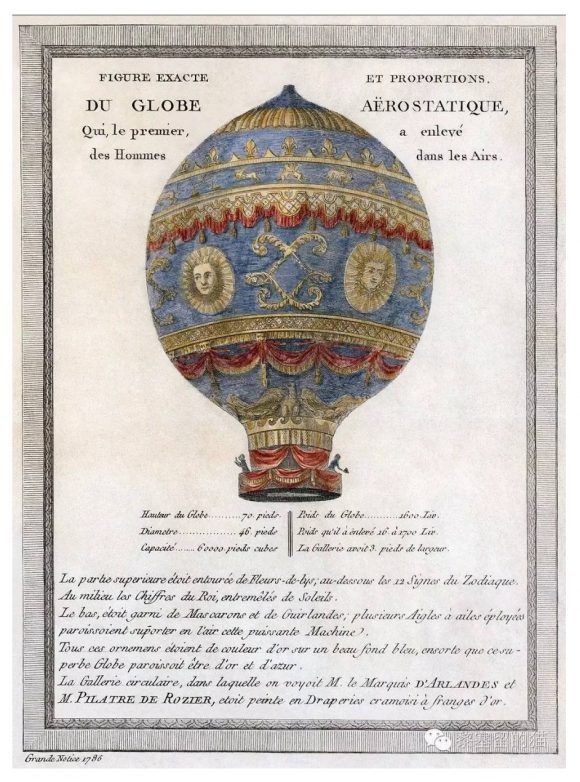 FIGURE EXACTE ET PROPORTIONS.
DU GLOBE AËROSTATIQUE,
Qui, le premier, a enlevé
des Hommes dans les Airs.
Hauteur du Globe..........70. pieds.
Diametre..................46. pieds
Capacité......60000 pieds cubes
Poids du Globe...........1600 Liv.
Poids qu'il à enlevé 16 à 1700 Liv.
La Gallerie avoit 3. pieds de largeur.
La partie superieure étoit entourée de Fleurs-de-lys; au-dessous les 12 Signes du Zodiaque.
Au milieu les Chiffres du Roi, entremêlés de Soleils.
Le bas, étoit garni de Mascarons et de Guirlandes; plusieurs Aigles à ailes éployées
paroissoient supórter en l'air cette puissante Machine.
Tous ces ornemens étoient de couleur d'or sur un beau fond bleu, ensorte que ce su-
perbe Globe paroissoit être d'or et d'azur.
La Gallerie circulaire, dans laquelle on voyoit M. le Marquis D'ARLANDES et
M. PILATRE DE ROZIER, etoit peinte en Draperies cramoisi à franges d'or.
Grande Notice 1786
黎塞留的猫